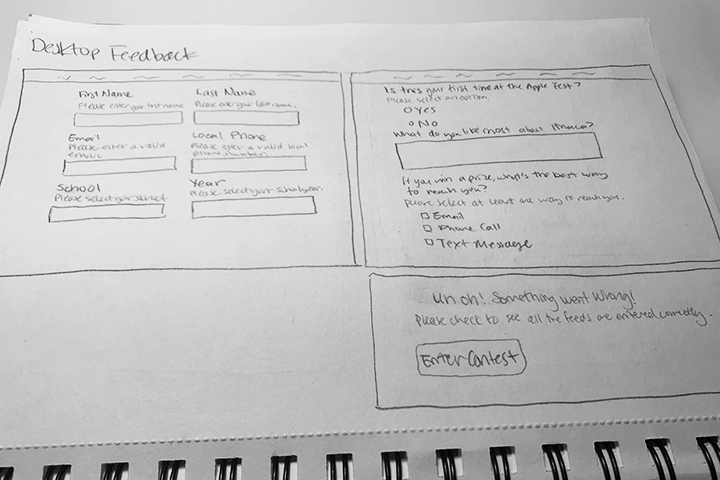 Desktop Feedback
First Name
Please enter your first name.
Last Name
Please enter your last name.
Email
Please enter a valid
email.
Local Phone
Please enter a valid local
phone number.
School
Please select your school.
Year
Please select your school year.
Is this your first time at the Apple Fest?
Please select an option.
Yes
No
What do you like most about Ithaca?
If you win a prize, what's the best way
to reach you?
Please select at least one way to reach you.
Email
Phone Call
Text Message
Uh oh! Something went wrong!
Please check to see all the feeds are entered correctly.
Enter Contest